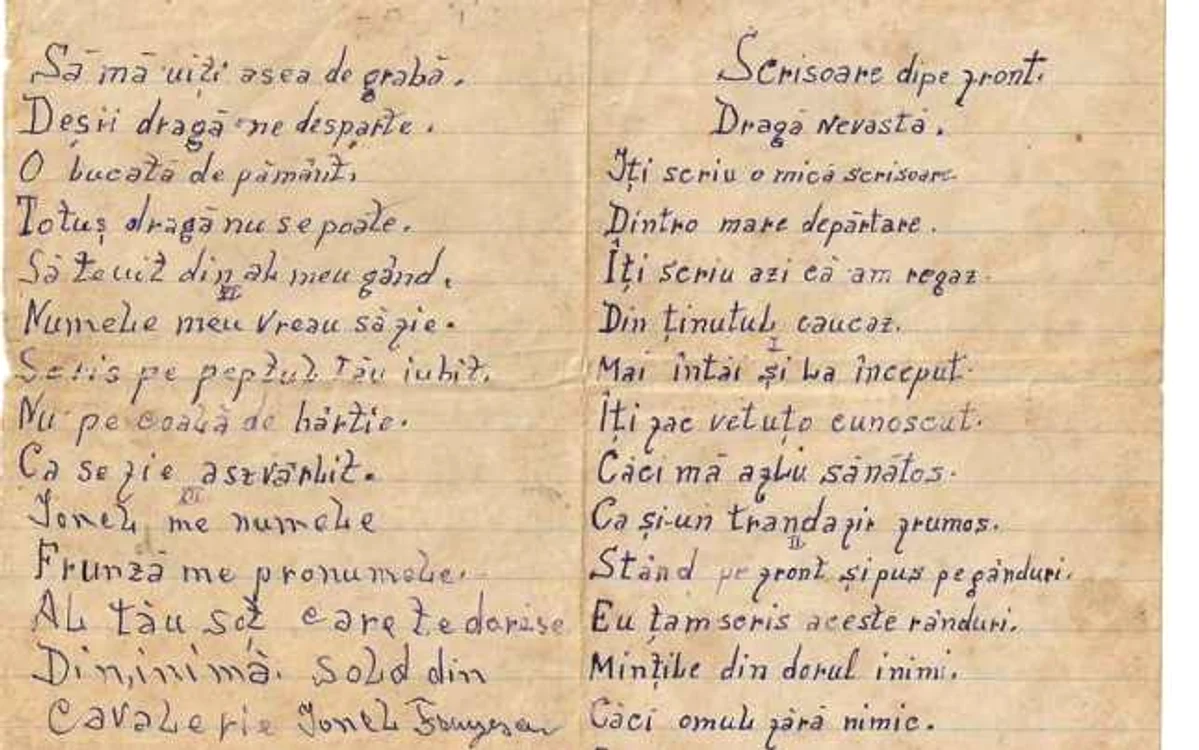 Să mă uiți asea de grabă.
Deșii dragă ne desparte.
O bucată de pământ,
Totuș dragă nu se poate.
Să te uit din al meu gând.
XI
Numele meu vreau să fie.
Scris pe peptul Tău iubit.
Nu pe coală de hârtie.
Ca se fie asvârlit.
XII
Ionel me numele
Frunză me pronumele.
Al tău soț care te dorise
Din,inimă. sold din
Cavalerie Ionel
Scrisoare dipe front.
Dragă Nevastă.
Iți scriu o mică scrisoare
Dintro mare depărtare.
Îți scriu azi că am regaz.
Din ținutul caucaz.
I
Mai întăi și la început.
Îți fac vetuțo cunoscut.
Căci mă aflu sănătos.
Ca și-un trandafir frumos.
II
Stând pe front și pus pe gânduri.
Eu țam scris aceste rânduri.
Mințile din dorul inimi.
Căci omul fără nimic.